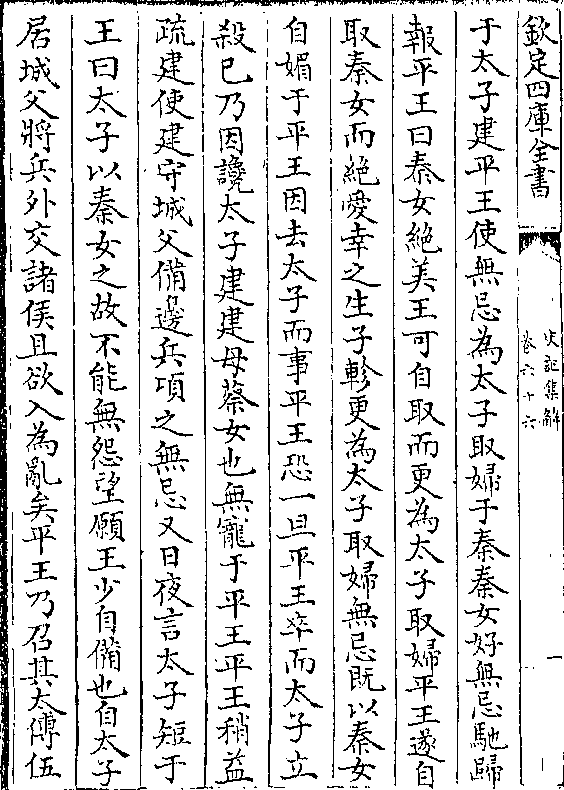 欽定四庫全書
史記集解
卷六十六
一
于太子建平王使無忌為太子取婦于秦秦女好無忌馳歸
報平王曰秦女絶美王可自取而更為太子取婦平王遂自
取秦女而絶愛幸之生子軫更為太子取婦無忌既以秦女
自媚于平王因去太子而事平王恐一旦平王卒而太子立
殺已乃因讒太子建建母蔡女也無寵于平王平王稍益
疏建使建守城父備邊兵項之無忌又日夜言太子短于
王曰太子以秦女之故不能無怨望願王少自備也自太子
居城父將兵外交諸侯且欲入為亂矣平王乃召其太傅伍